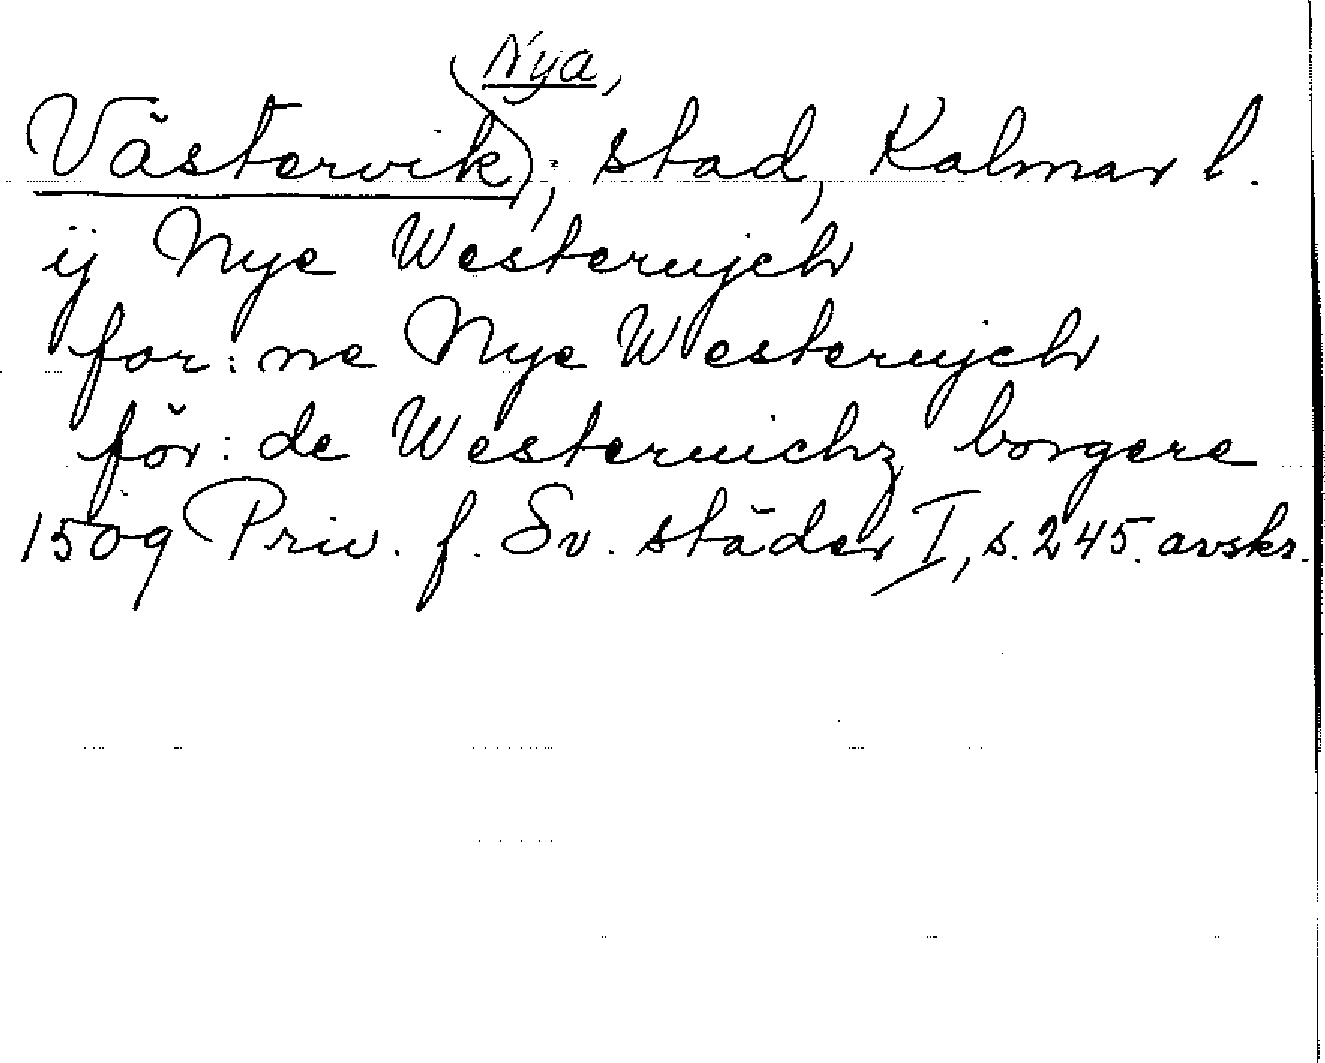 Nya,
Västervik, stad, Kalmar l.
ij Nye Westerujch
for: ne Nye Westerujch
för: de Westeruichz borgere
1509 Priv. f. Sv. städer I, s. 245. avskr.